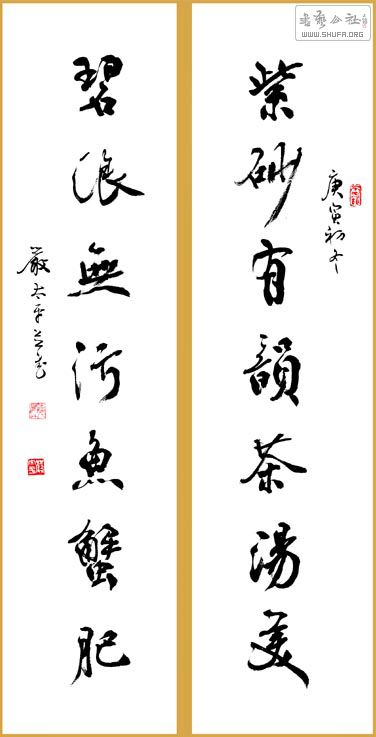 紫砂有韻茶湯美
庚寅初冬
碧浪無污魚蟹肥
嚴太平
WWW.SHUFA.ORG